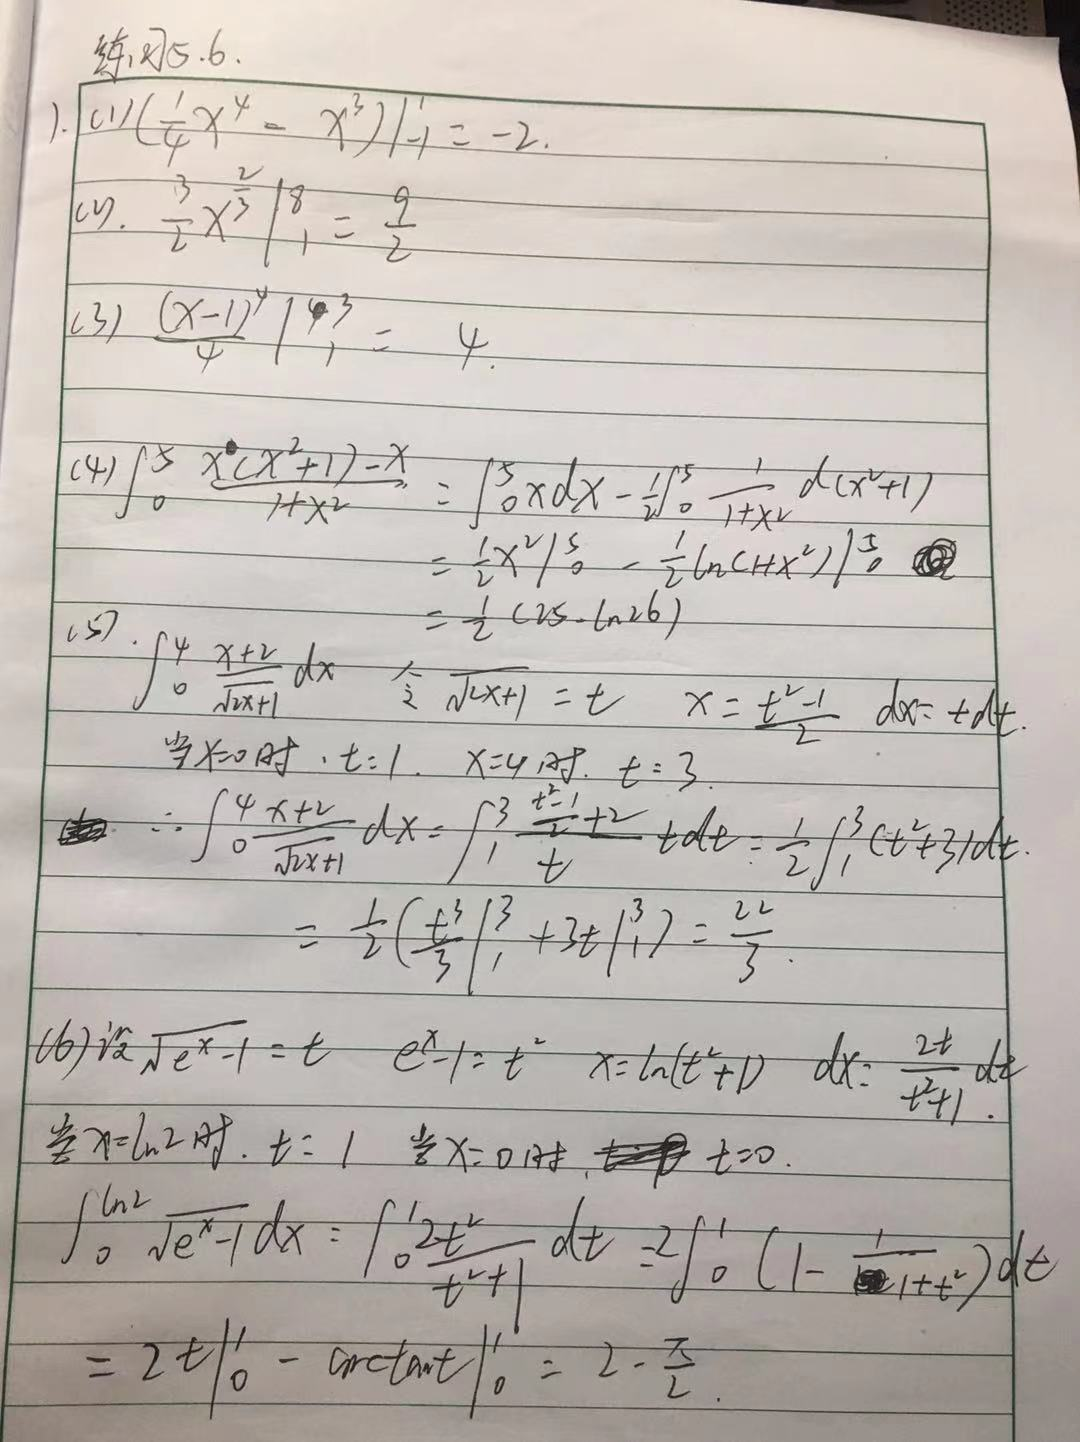 练习5.6.
1. (1) (1/4 x^4 - x^3)|_{-1}^{1} = -2.
(2). 3/2 x^{2/3} |_1^8 = 9/2
(3) (x-1)^4/4 |_1^3 = 4.
(4) ∫_0^5 (x(x²+1)-x)/(1+x²) = ∫_0^5 xdx - 1/2 ∫_0^5 1/(1+x²) d(x²+1)
= 1/2 x² |_0^5 - 1/2 ln(1+x²) |_0^5
= 1/2 (25-ln26)
(5). ∫_0^4 (x+2)/√(2x+1) dx 令 √(2x+1) = t x = (t²-1)/2 dx = tdt.
当x=0时. t=1. x=4时. t=3.
∴ ∫_0^4 (x+2)/√(2x+1) dx = ∫_1^3 ((t²-1)/2+2)/t tdt = 1/2 ∫_1^3 (t²+3)dt.
= 1/2 (t³/3 |_1^3 + 3t |_1^3) = 22/3.
(6) 设 √(e^x-1) = t e^x-1 = t² x = ln(t²+1) dx = 2t/(t²+1) dt.
当x=ln2时. t=1 当x=0时. t=0.
∫_0^{ln2} √(e^x-1) dx = ∫_0^1 2t²/(t²+1) dt = 2∫_0^1 (1 - 1/(1+t²))dt
= 2t |_0^1 - arctant |_0^1 = 2 - π/2.